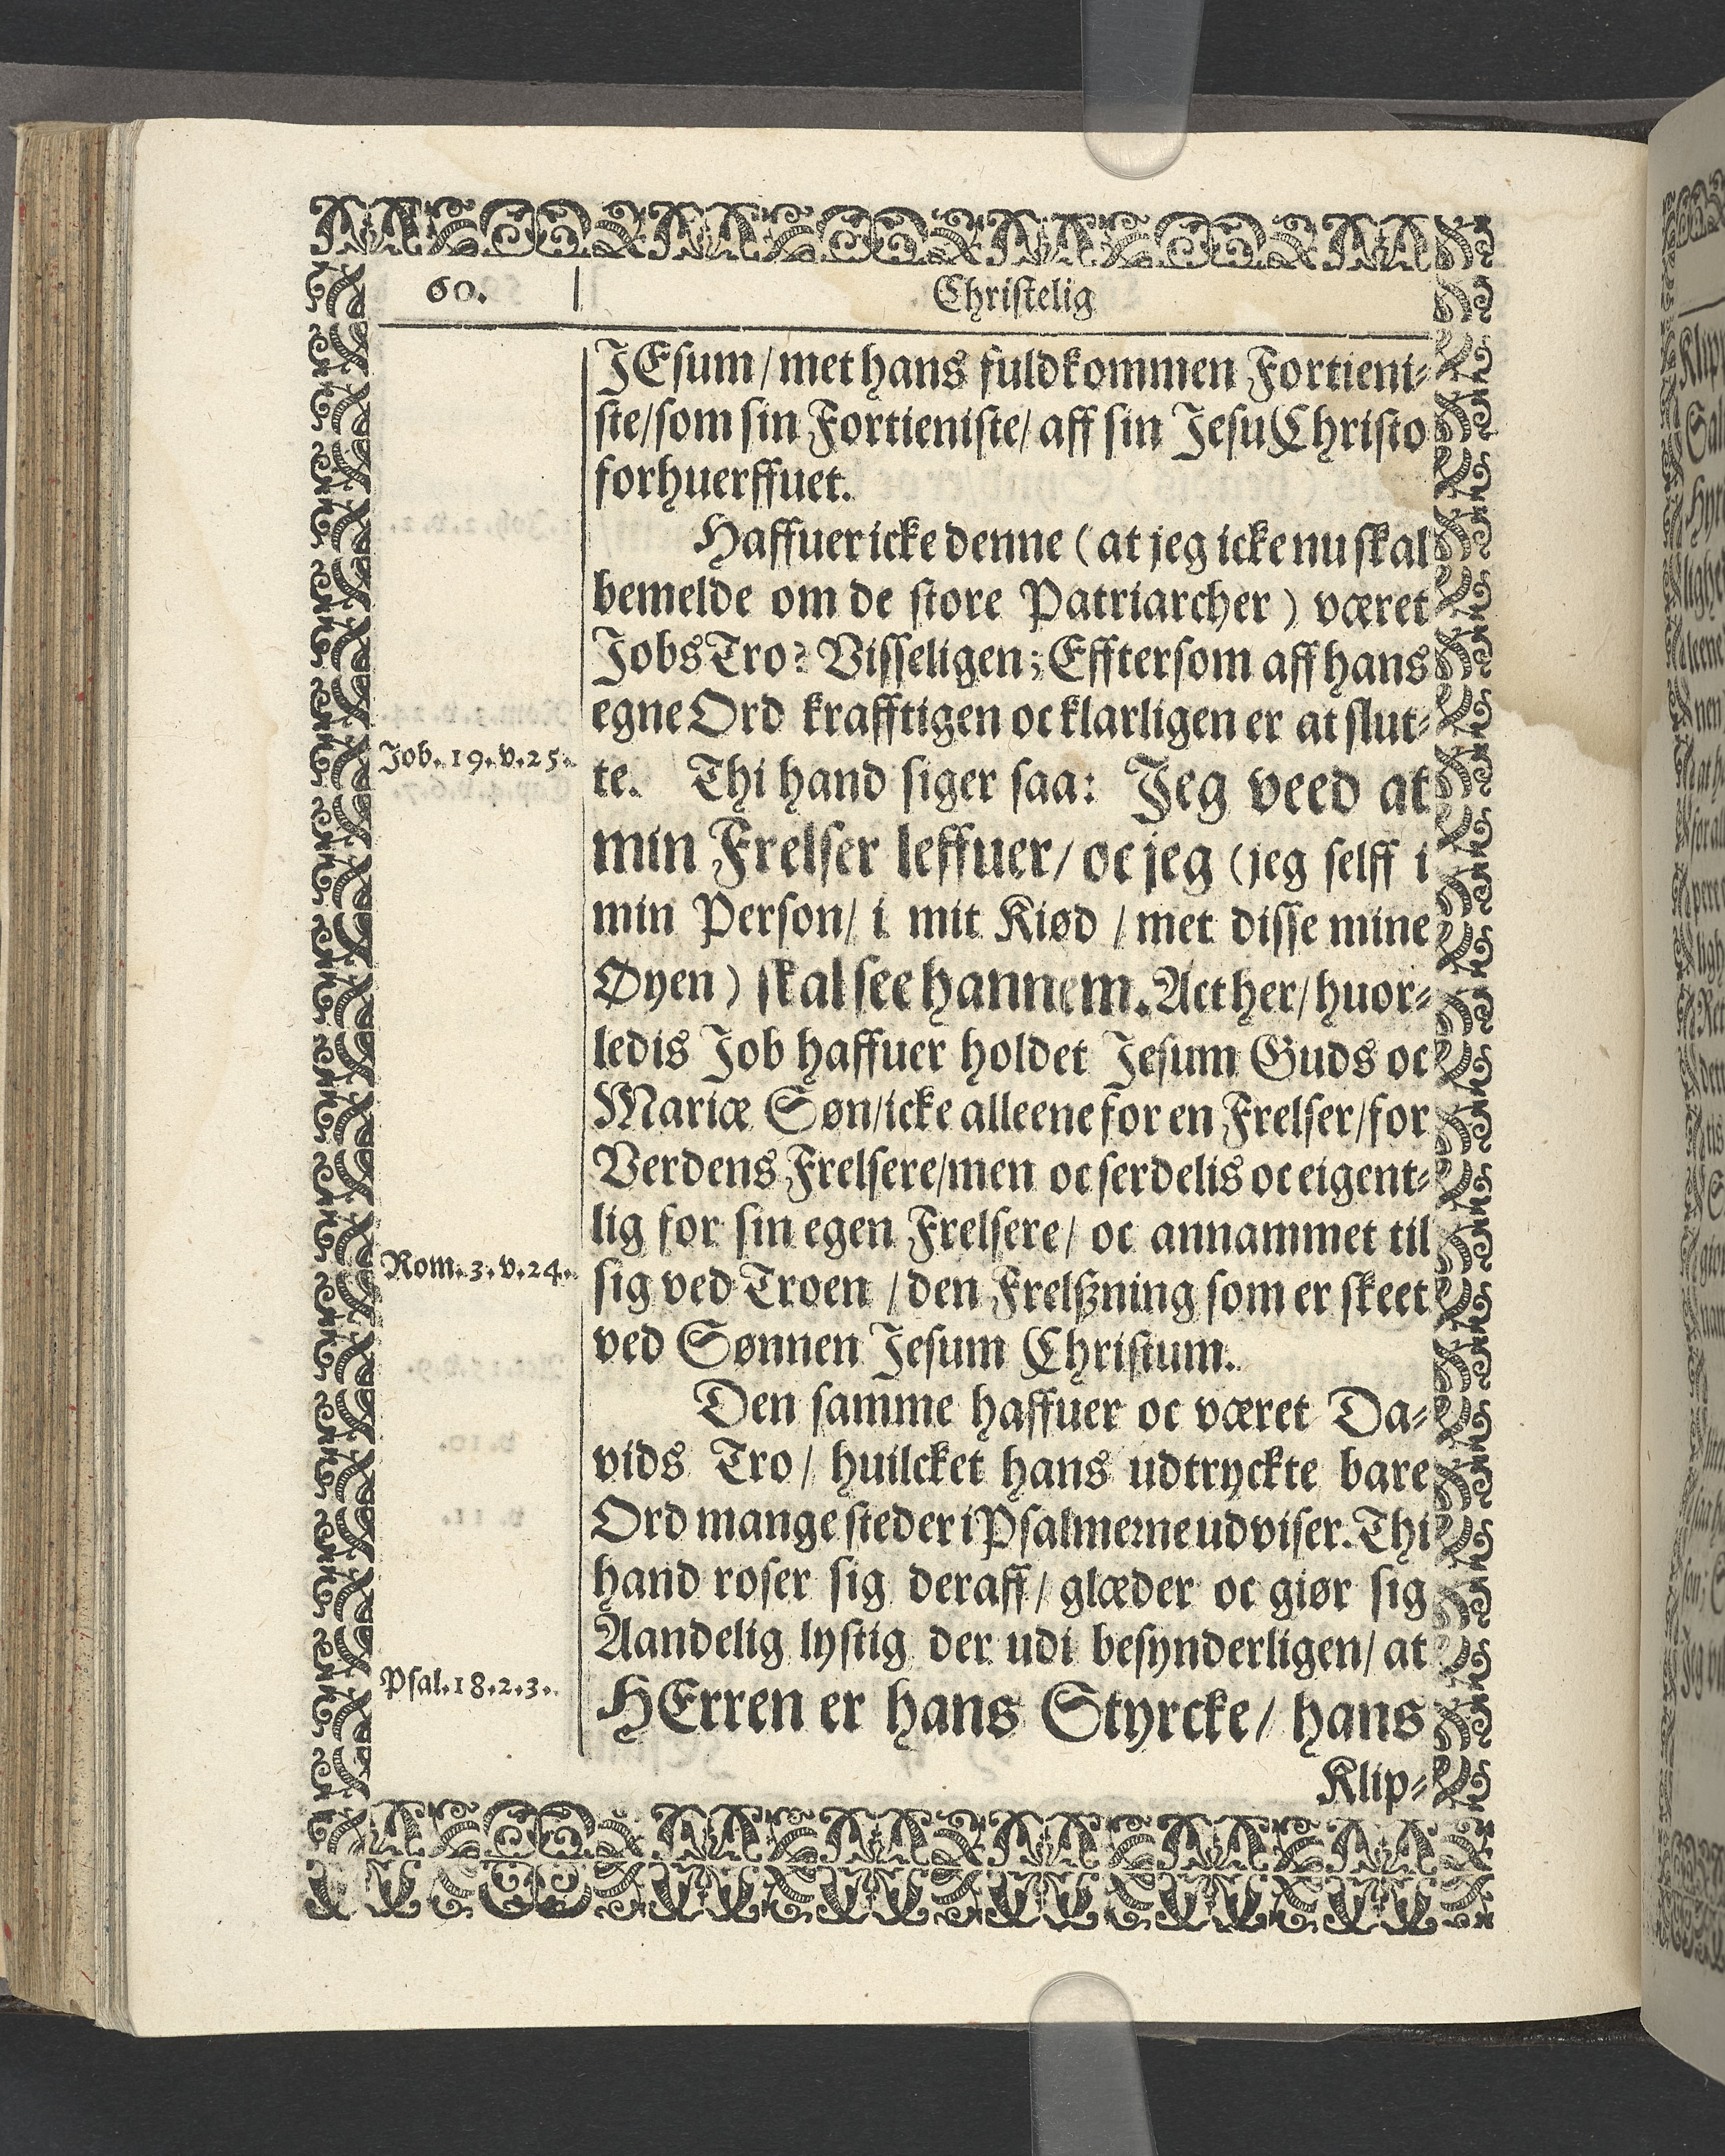 60.
Christelig
JEsum/met hans fuldkommen Fortieni-
ste/som sin Fortieniste/ aff sin Jesu Christo
forhuerffuet.
Haffuer icke denne (at jeg icke nu skal
bemelde om de store Patriarcher) været
Jobs Tro? Visseligen; Efftersom aff hans
egne Ord krafftigen oc klarligen er at slut-
Job. 19. v. 25.
te. Thi hand siger saa: Jeg veed at
min Frelser leffuer/ oc jeg (jeg selff i
min Person/ i mit Kiød / met disse mine
Øyen) skal see hannem. Act her/ huor-
ledis Job haffuer holdet Jesum Guds oc
Mariæ Søn/icke alleene for en Frelser/for
Verdens Frelsere/men oc serdelis oc eigent-
lig for sin egen Frelsere/ oc annammet til
Rom. 3. v. 24.
sig ved Troen / den Frelßning som er skeet
ved Sønnen Jesum Christum.
Den samme haffuer oc været Da-
vids Tro/ huilcket hans udtryckte bare
Ord mange steder i Psalmerne udviser. Thi
hand roser sig deraff/ glæder oc giør sig
Aandelig lystig der udi besynderligen/ at
Psal. 18. 2. 3.
HErren er hans Styrcke/ hans
Klip-